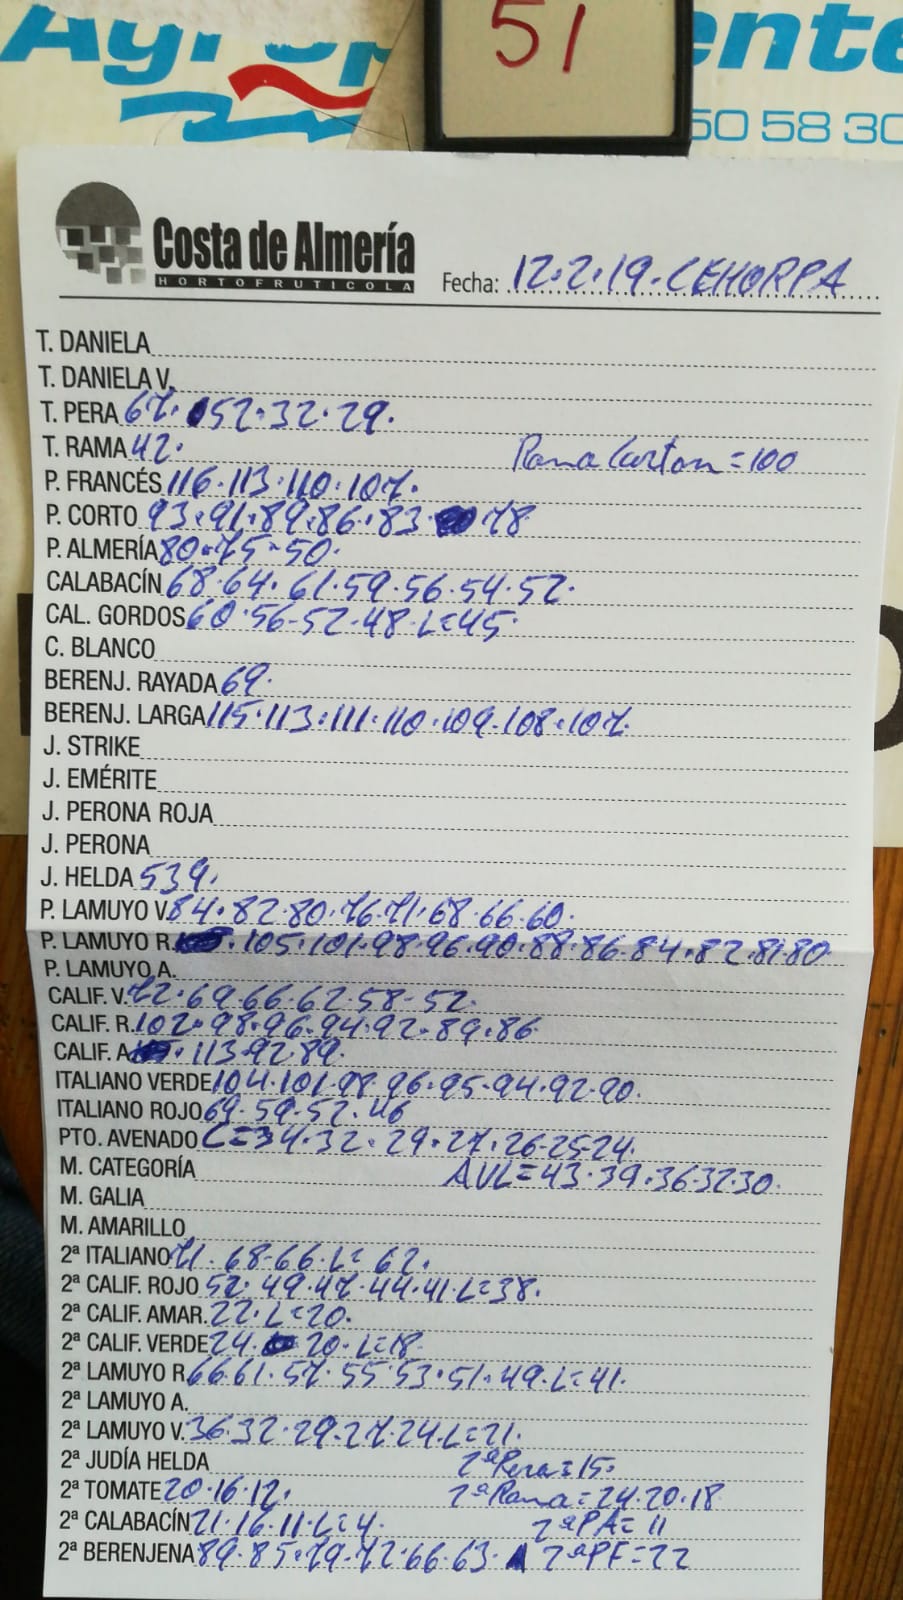 51
50 58 30
Costa de Almería
HORTOFRUTICOLA
Fecha: 12.2.19.CEHORPA
T. DANIELA
T. DANIELA V.
T. PERA 67. 52.32.29.
T. RAMA 42. Rama Carton=100
P. FRANCÉS 116.113.110.107.
P. CORTO 93.91.89.86.83 78
P. ALMERÍA 80.75-50.
CALABACÍN 68.64.61.59.56.54.52.
CAL. GORDOS 60.56-52-48.L=45.
C. BLANCO
BERENJ. RAYADA 69.
BERENJ. LARGA 115.113.111.110.109.108.107.
J. STRIKE
J. EMÉRITE
J. PERONA ROJA
J. PERONA
J. HELDA 539.
P. LAMUYO V. 84.82.80.76.71.68.66.60.
P. LAMUYO R. .105.101.98.96.90.88.86.84.82.81.80.
P. LAMUYO A.
CALIF. V. 72.69.66.62.58-52.
CALIF. R. 102.98.96.94.92.89.86.
CALIF. A. .113.92.89.
ITALIANO VERDE 104.101.98.96.95.94.92.90.
ITALIANO ROJO 69.59.52.46
PTO. AVENADO C=34.32.29.27.26-25-24.
M. CATEGORÍA AVL=43.39.36.32.30.
M. GALIA
M. AMARILLO
2ª ITALIANO 71.68.66.L=62.
2ª CALIF. ROJO 52.49.47.44.41.L=38.
2ª CALIF. AMAR. 22.L=20.
2ª CALIF. VERDE 24. 20.L=18.
2ª LAMUYO R. 66.61.57.55.53.51.49.L=41.
2ª LAMUYO A.
2ª LAMUYO V. 36.32.29.27.24.L=21.
2ª JUDÍA HELDA 2ªPera=15.
2ª TOMATE 20.16.12. 2ªRama=24.20.18
2ª CALABACÍN 21.16.11.L=4. 2ªPA=11
2ª BERENJENA 89.85.79.72.66.63. 2ªPF=22